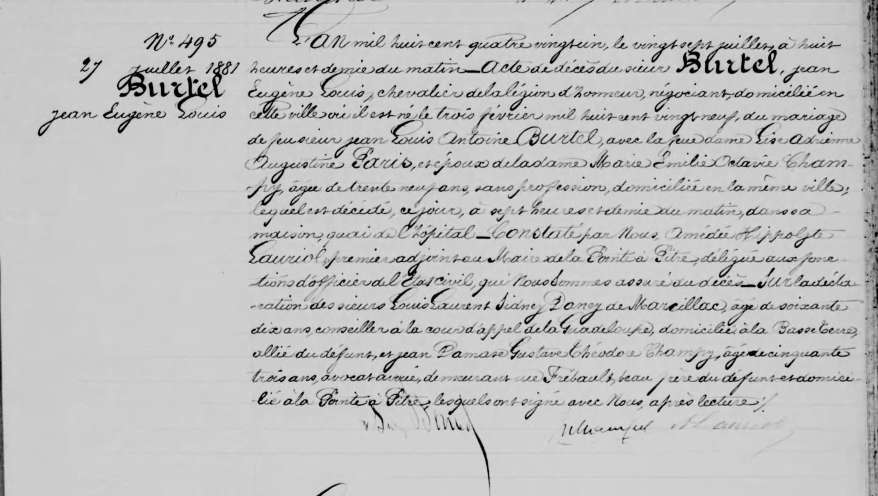 N° 495
27 juillet 1881
Burtel
jean Eugène Louis
L'AN mil huit cent quatre vingt un, le vingt sept juillet, à huit
heures et demie du matin_Acte de décès du sieur Burtel, jean
Eugène Louis, chevalier de la légion d'honneur, négociant, domicilié en
cette ville où il est né le trois février mil huit cent vingt neuf, du mariage
de feu sieur jean Louis Antoine Burtel, avec la feue dame Lise Adrienne
Augustine Paris, et époux de la dame Marie Émilie Octavie Cham-
py, âgée de trente neuf ans, sans profession, domiciliée en la même ville;
lequel est décédé, ce jour, à sept heures et demie du matin, dans sa
maison, quai de l'hôpital_Constaté par Nous, Amédée Hippolyte
Lauriol, premier adjoint au Maire de la Pointe à Pitre, délégué aux fonc-
tions d'officier de l'État civil, qui Nous sommes assuré du décès_Sur la décla-
ration des sieurs Louis Laurent Sidney Daney de Marcillac, âgé de soixante
dix ans, conseiller à la cour d'appel de la Guadeloupe, domicilié à la Basse Terre,
allié du défunt, et jean Damase Gustave Théodore Champy, âgé de cinquante
trois ans, avocat avoué, demeurant rue Frébault, beau frère du défunt et domici-
lié à la Pointe à Pitre, lesquels ont signé avec Nous, après lecture ./.